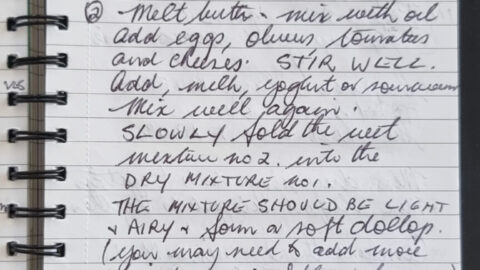 ② Melt butter - mix with oil
Add eggs, olives, tomatoes
and cheeses. STIR WELL.
Add, milk, yoghurt or sourcream
Mix well again.
SLOWLY fold the wet
mixture no 2. into the
DRY MIXTURE no1.
THE MIXTURE SHOULD BE LIGHT
& AIRY & form a soft dollop.
(you may need to add more